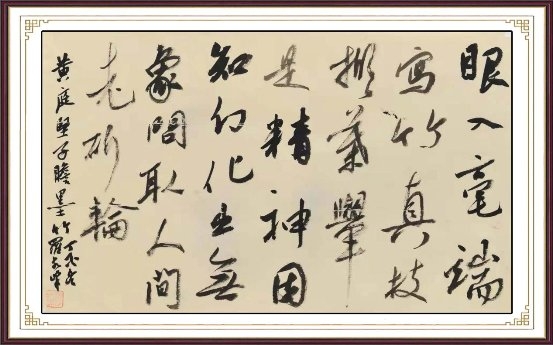 眼入毫端
寫竹真枝
掀葉舉
是精神因
知幻化出無
象問取人間
老斫輪
黄庭堅子瞻墨竹